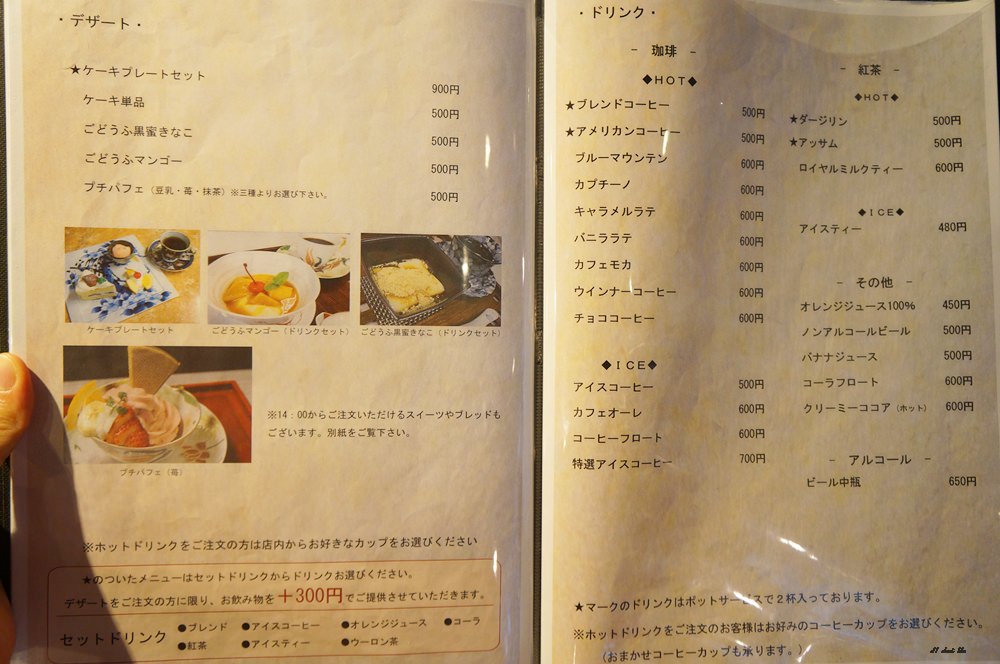 ・デザート・
★ケーキプレートセット 900円
ケーキ単品 500円
ごどうふ黒蜜きなこ 500円
ごどうふマンゴー 500円
プチパフェ（豆乳・苺・抹茶）※三種よりお選び下さい。 500円
ケーキプレートセット
ごどうふマンゴー（ドリンクセット）
ごどうふ黒蜜きなこ（ドリンクセット）
プチパフェ（苺）
※14：00からご注文いただけるスイーツやブレッドも
ございます。別紙をご覧下さい。
※ホットドリンクをご注文の方は店内からお好きなカップをお選びください
★のついたメニューはセットドリンクからドリンクお選びください。
デザートをご注文の方に限り、お飲み物を＋300円でご提供させていただきます。
セットドリンク
●ブレンド ●アイスコーヒー ●オレンジジュース ●コーラ
●紅茶 ●アイスティー ●ウーロン茶
・ドリンク・
－ 珈琲 －
◆HOT◆
★ブレンドコーヒー 500円
★アメリカンコーヒー 500円
ブルーマウンテン 600円
カプチーノ 600円
キャラメルラテ 600円
バニララテ 600円
カフェモカ 600円
ウインナーコーヒー 600円
チョココーヒー 600円
◆ICE◆
アイスコーヒー 500円
カフェオーレ 600円
コーヒーフロート 600円
特選アイスコーヒー 700円
－ 紅茶 －
◆HOT◆
★ダージリン 500円
★アッサム 500円
ロイヤルミルクティー 600円
◆ICE◆
アイスティー 480円
－ その他 －
オレンジジュース100% 450円
ノンアルコールビール 500円
バナナジュース 500円
コーラフロート 600円
クリーミーココア（ホット） 600円
－ アルコール －
ビール中瓶 650円
★マークのドリンクはポットサービスで２杯入っております。
※ホットドリンクをご注文のお客様はお好みのコーヒーカップをお選びください。
（おまかせコーヒーカップも承ります。）